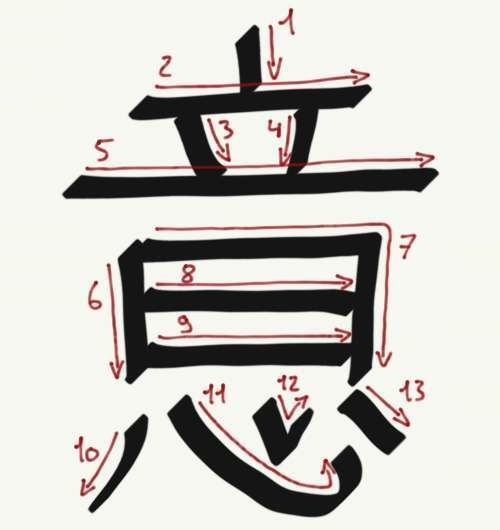 意
1
2
3 4
5
6
7
8
9
10
11
12
13